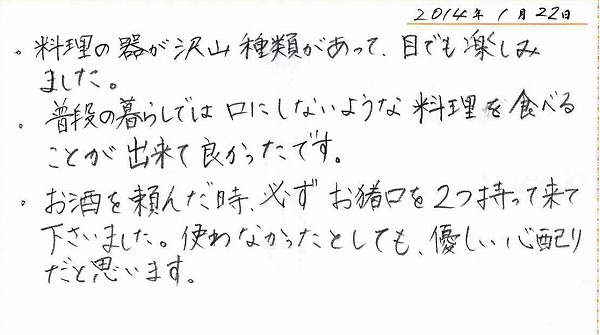 2014年1月22日
。料理の器が沢山種類があって、目でも楽しみ
ました。
。普段の暮らしでは口にしないような料理を食べる
ことが出来て良かったです。
。お酒を頼んだ時、必ずお猪口を2つ持って来て
下さいました。使わなかったとしても、優しい心配り
だと思います。